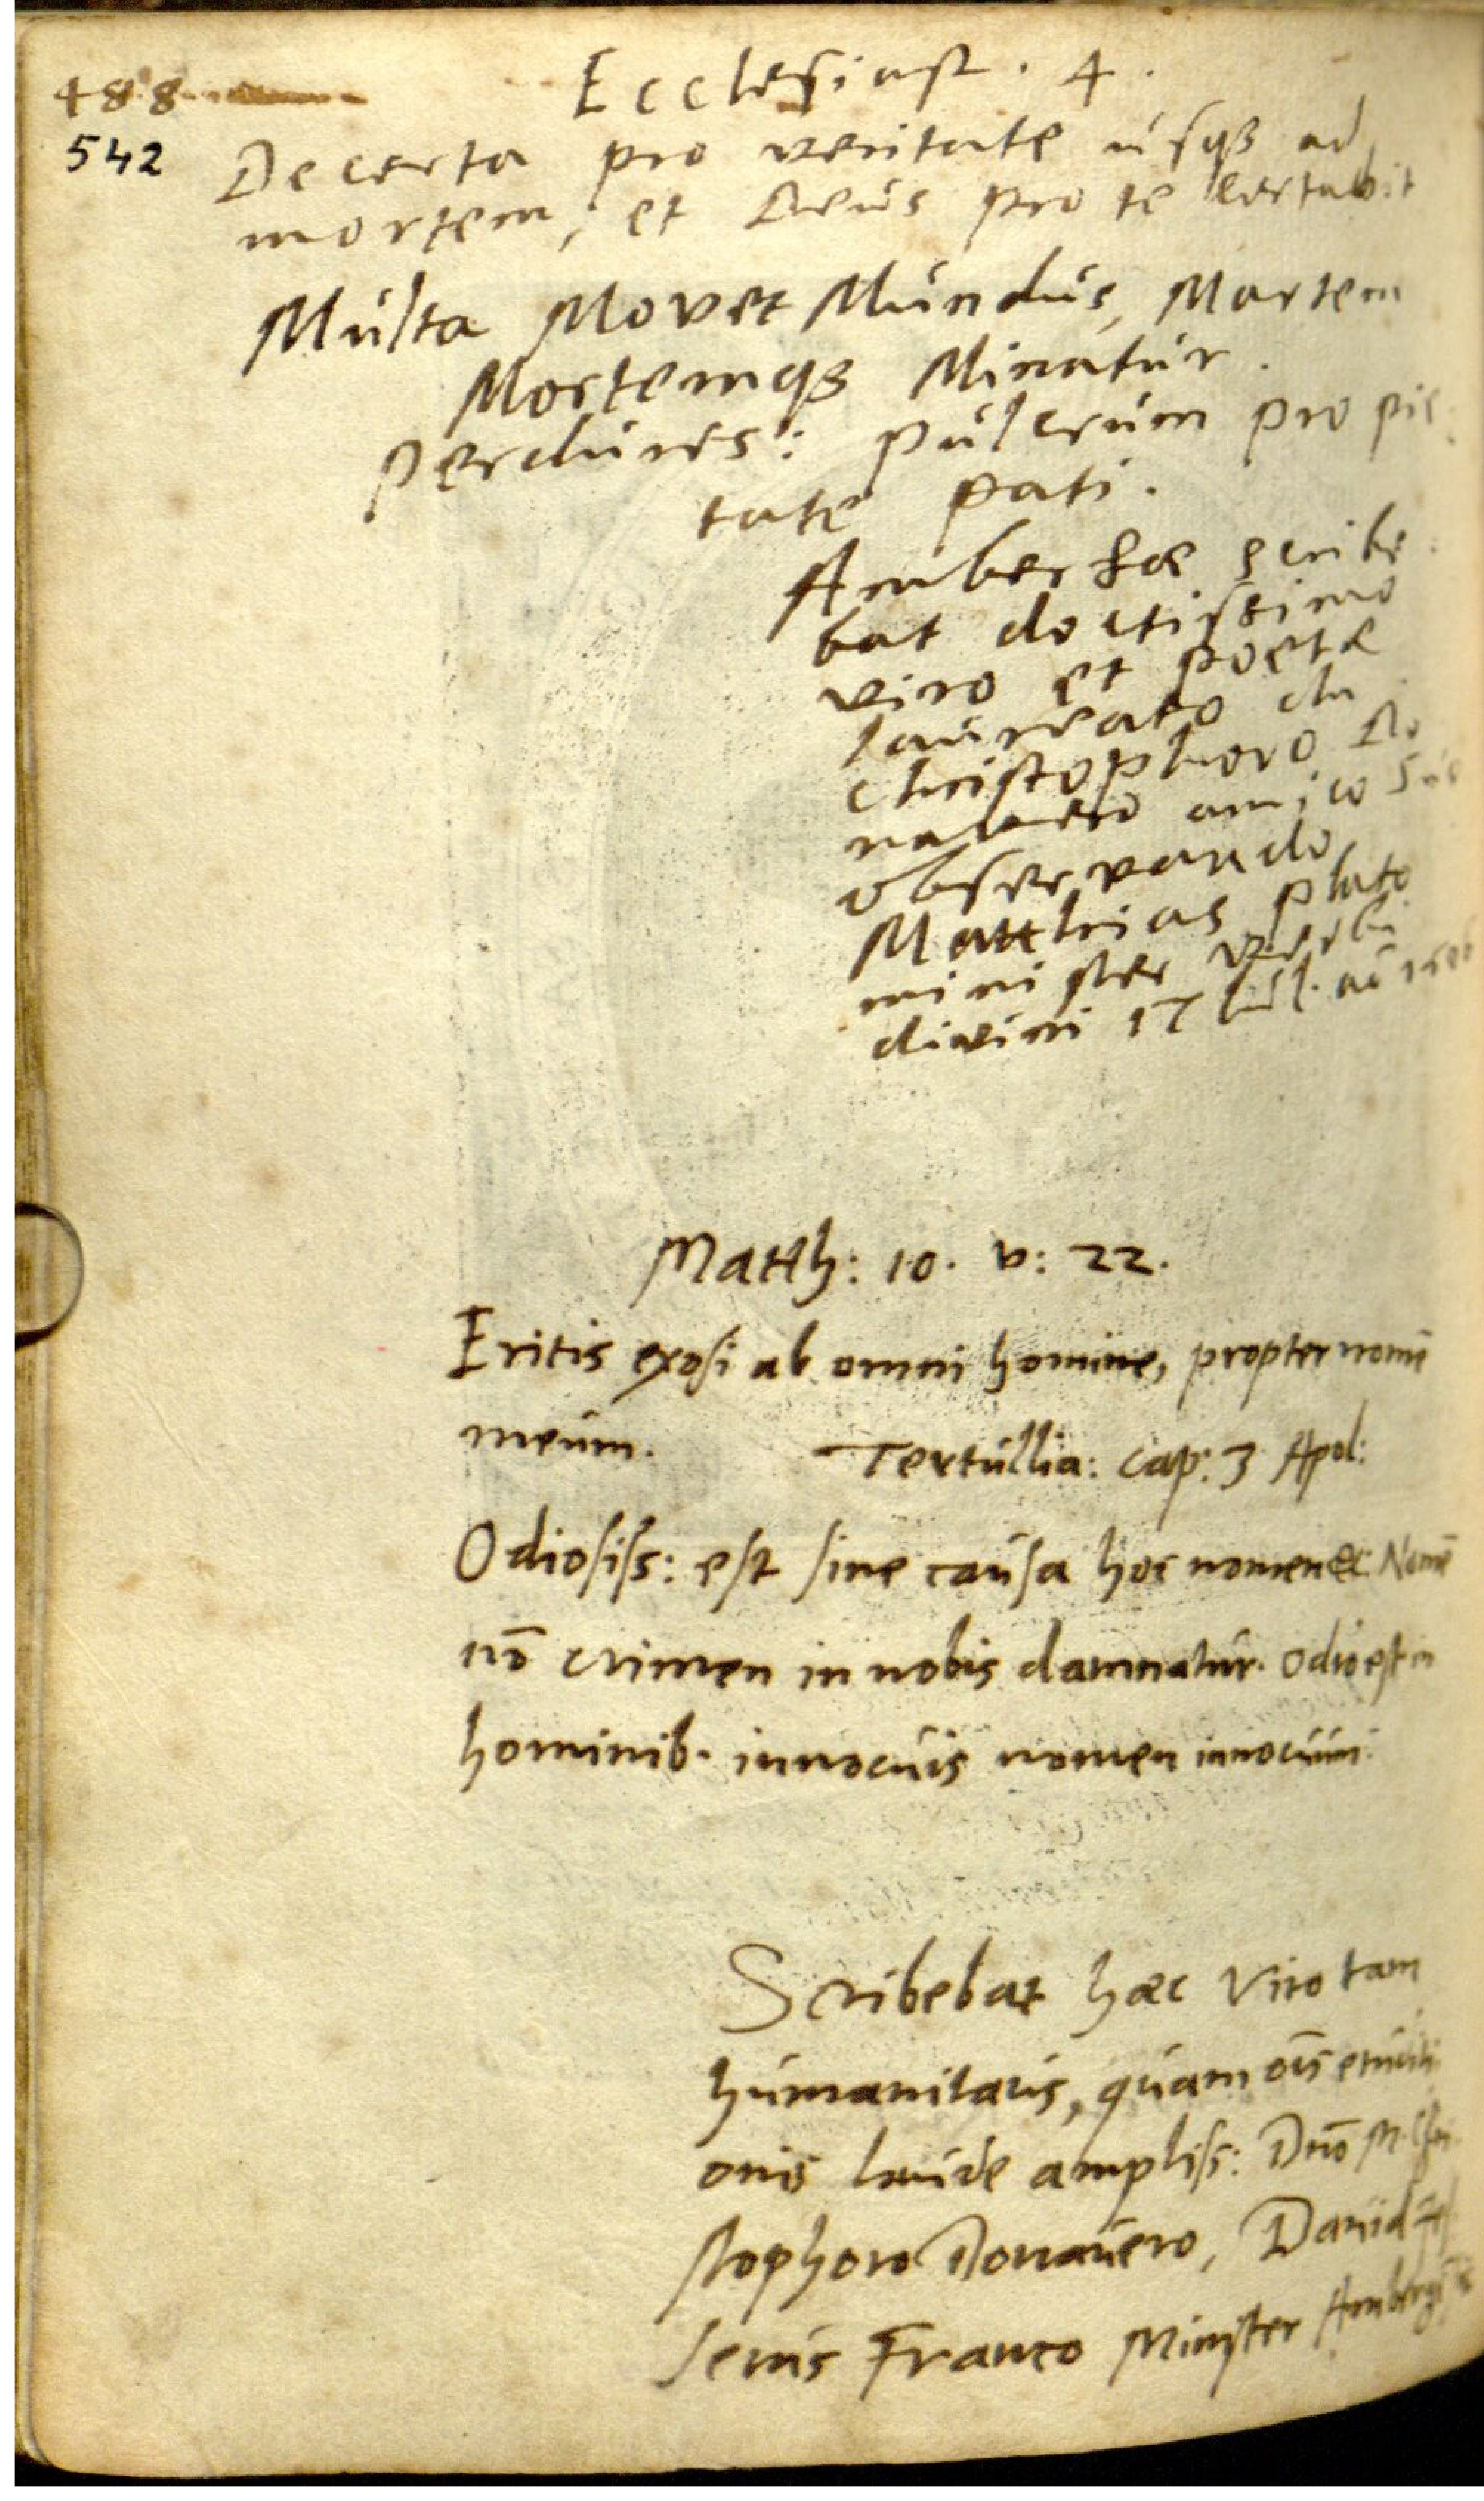 488
Ecclesiast. 4.
542
Decerta pro veritate usqꝫ ad
mortem, et Deus pro te certabit
Multa Movet Mundus, Martem
Mortemqꝫ Minatur.
Perdures: pulcrum pro pie
tate pati.
Ambergæ scribe
bat doctissimo
viro et poetæ
laureato dn
Christophoro Do
navero amico suo
observando
Matthias Plato
minister verbi
divini 17 Iul. aō
Matth: 10. v: 22.
Eritis exosi ab omni homine, propter nomē
meum. Tertullia: cap: 3 Apol:
Odiosiss: est sine causa hoc nomen &c: Nomē
nō crimen in nobis damnatur. odio est in
hominib. innocuis nomen innocuum.
Scribebat hæc Viro tam
humanitatis, quam oīs eruditi
onis laude ampliss: Dnō M. Chri
stophoro Donauero, David
senius Franco Minister Amberg